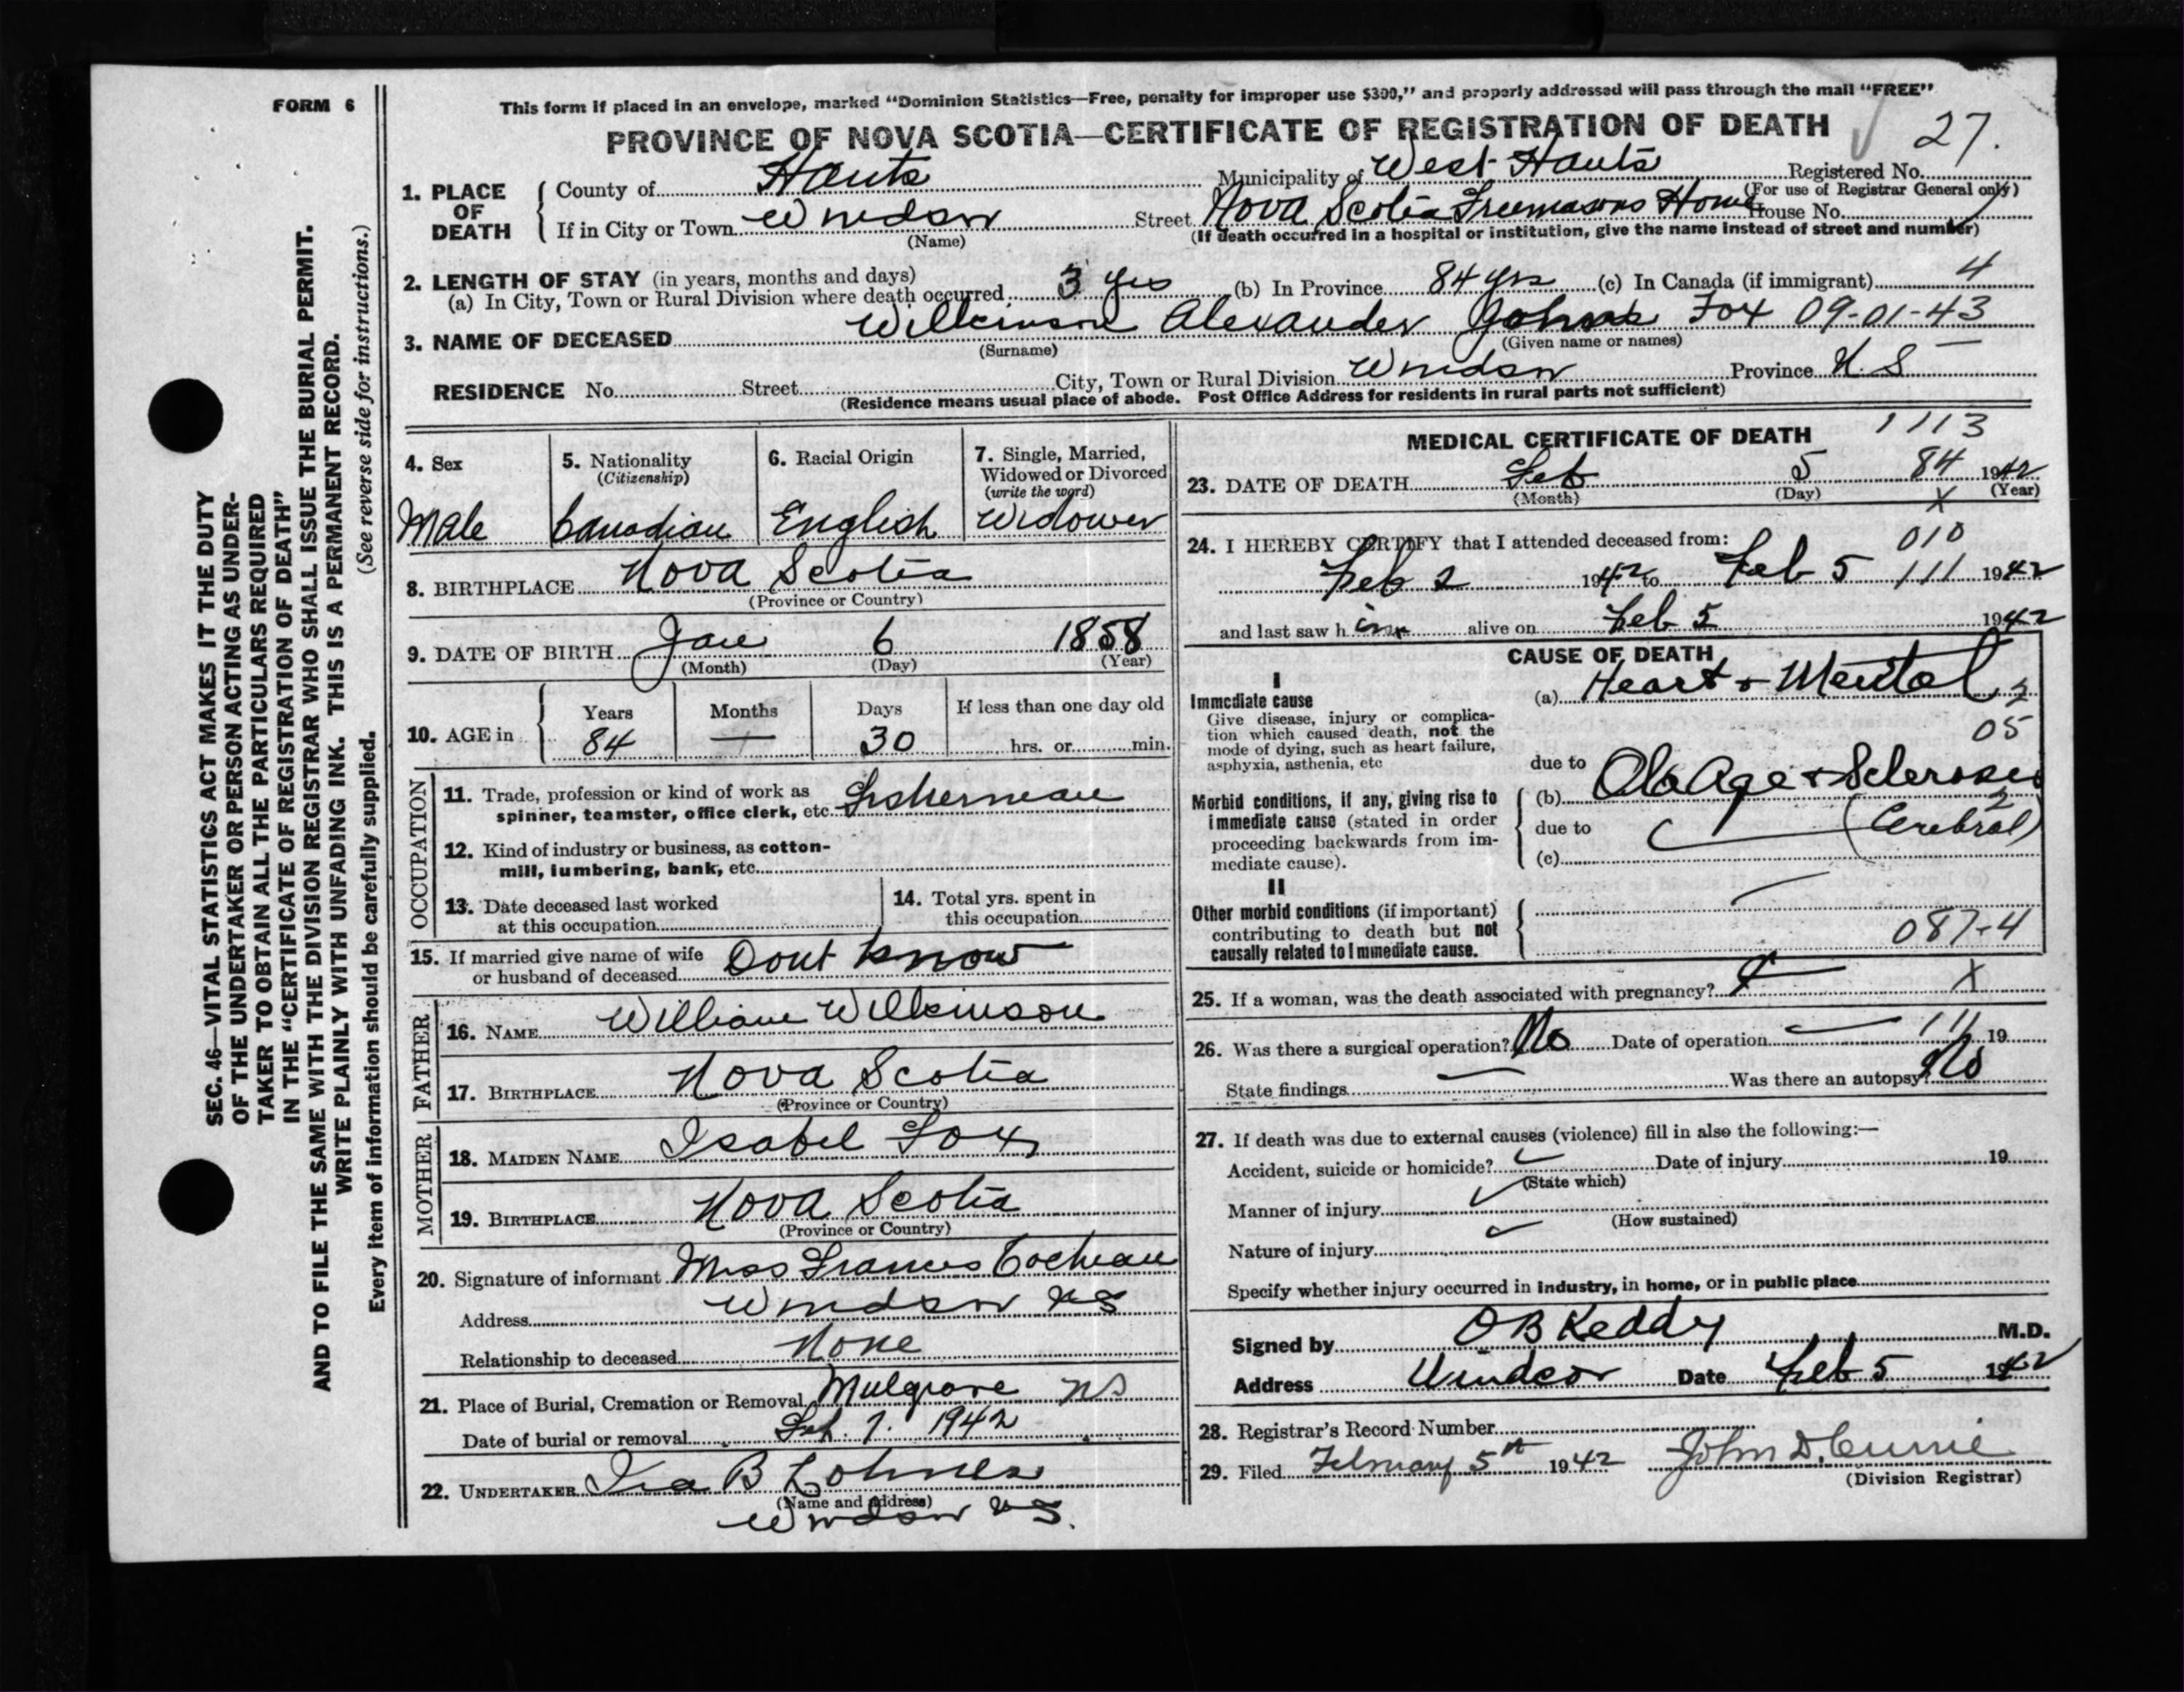 FORM 6
This form if placed in an envelope, marked "Dominion Statistics—Free, penalty for improper use $300," and properly addressed will pass through the mail "FREE"
PROVINCE OF NOVA SCOTIA—CERTIFICATE OF REGISTRATION OF DEATH
27.
1. PLACE OF DEATH
County of Hants Municipality of West Hants Registered No.
(For use of Registrar General only)
If in City or Town Windsor Street Nova Scotia Freemasons Home House No.
(Name) (If death occurred in a hospital or institution, give the name instead of street and number)
2. LENGTH OF STAY (in years, months and days)
(a) In City, Town or Rural Division where death occurred 3 yrs (b) In Province 84 yrs (c) In Canada (if immigrant) 4
3. NAME OF DECEASED Wilkinson Alexander Fox 09-01-43
(Surname) (Given name or names)
RESIDENCE No. Street City, Town or Rural Division Windsor Province N. S
(Residence means usual place of abode. Post Office Address for residents in rural parts not sufficient)
SEC. 46—VITAL STATISTICS ACT MAKES IT THE DUTY
OF THE UNDERTAKER OR PERSON ACTING AS UNDER-
TAKER TO OBTAIN ALL THE PARTICULARS REQUIRED
IN THE "CERTIFICATE OF REGISTRATION OF DEATH"
AND TO FILE THE SAME WITH THE DIVISION REGISTRAR WHO SHALL ISSUE THE BURIAL PERMIT.
WRITE PLAINLY WITH UNFADING INK. THIS IS A PERMANENT RECORD.
(See reverse side for instructions.)
Every item of information should be carefully supplied.
4. Sex 5. Nationality 6. Racial Origin 7. Single, Married,
(Citizenship) Widowed or Divorced
(write the word)
Male Canadian English Widower
8. BIRTHPLACE Nova Scotia
(Province or Country)
9. DATE OF BIRTH Jan 6 1858
(Month) (Day) (Year)
10. AGE in Years Months Days If less than one day old
84 — 30 hrs. or min.
OCCUPATION
11. Trade, profession or kind of work as
spinner, teamster, office clerk, etc. Fisherman
12. Kind of industry or business, as cotton-
mill, lumbering, bank, etc.
13. Date deceased last worked
at this occupation
14. Total yrs. spent in
this occupation
15. If married give name of wife
or husband of deceased Dont know
FATHER
16. NAME William Wilkinson
17. BIRTHPLACE Nova Scotia
(Province or Country)
MOTHER
18. MAIDEN NAME Isabel Fox
19. BIRTHPLACE Nova Scotia
(Province or Country)
20. Signature of informant Miss Frances Cochran
Address Windsor NS
Relationship to deceased None
21. Place of Burial, Cremation or Removal Mulgrave NS
Date of burial or removal Feb. 7. 1942
22. UNDERTAKER Ira B Lohnes
(Name and address)
Windsor NS.
MEDICAL CERTIFICATE OF DEATH 1113
23. DATE OF DEATH Feb 5 84 1942
(Month) (Day) X (Year)
24. I HEREBY CERTIFY that I attended deceased from: 010
Feb 2 1942 to Feb 5 111 1942
and last saw him alive on Feb 5 1942
CAUSE OF DEATH
I
Immediate cause (a) Heart + Mental 2
Give disease, injury or complica-
tion which caused death, not the 05
mode of dying, such as heart failure,
asphyxia, asthenia, etc due to
Morbid conditions, if any, giving rise to (b) Old Age + Sclerosis
immediate cause (stated in order due to (Cerebral) 2
proceeding backwards from im-
mediate cause). (c)
II
Other morbid conditions (if important)
contributing to death but not 087-4
causally related to immediate cause.
25. If a woman, was the death associated with pregnancy? X
26. Was there a surgical operation? No Date of operation 111 19
State findings Was there an autopsy? No
27. If death was due to external causes (violence) fill in also the following:—
Accident, suicide or homicide? Date of injury 19
(State which)
Manner of injury
(How sustained)
Nature of injury
Specify whether injury occurred in industry, in home, or in public place
Signed by O B Keddy M.D.
Address Windsor Date Feb 5 1942
28. Registrar's Record Number
29. Filed February 5th 1942 John D. Currie
(Division Registrar)